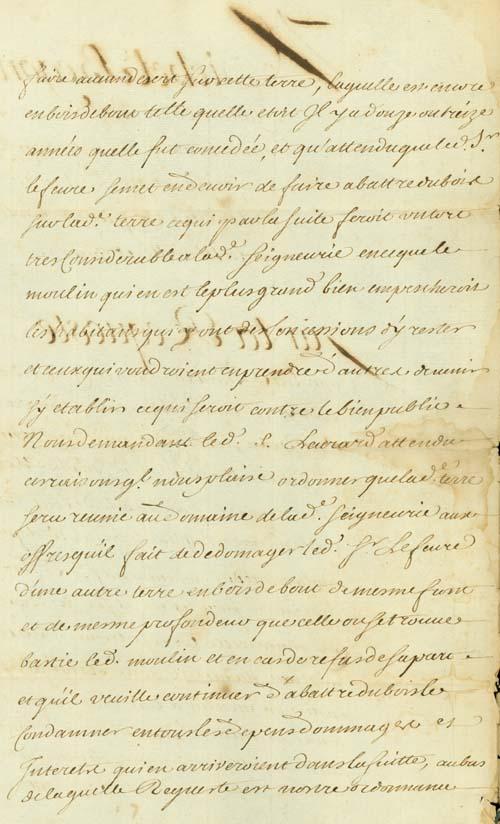 faire aucun desert sur cette terre, laquelle est encore
en bois debout telle quelle etoit Il y a douze ou treize
années quelle fut concedée, et qu'attendu que led. Sr.
lefevre se met en devoir de faire abattre du bois
sur lad.e terre ce qui par la suite feroit un tort
tres Considerable a lad.e Seigneurie en ce que le
moulin qui en est le plus grand bien empescheroit
les habitans qui y ont des Concessions d'y rester
et ceux qui voudroient en prendre d'autres de venir
s'y etablir ce qui seroit contre le bien public
Nous demandant led. S. attendu
ces raisons ql. nous plaise ordonner que lad.e terre
sera reunie au Domaine de lad.e Seigneurie aux
offres quil fait de dedomager led. Sr. Lefevre
d'une autre terre en bois debout de mesme front
et de mesme profondeur que celle ou se trouve
bastie led. moulin et en cas de refus de sa part
et quil veuille continuer d'abattre du bois le
Condamner en tous les depens dommages et
Interests qui en arriveroient dans la suitte, au bas
de laquelle Requeste est nostre ordonnance